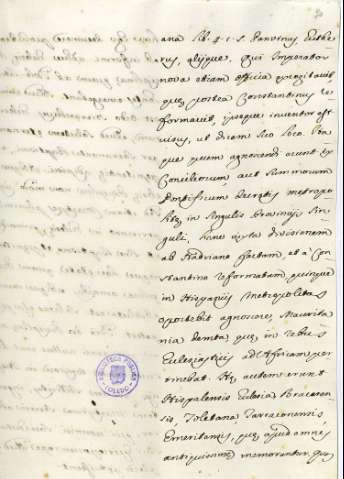 ana lib. 2. c. 5. Panvinus, Euthe-
rus, aliique, qui Imperator
nova etiam officia excogitavit,
quæ postea Constantinus re-
formavit, ipseque inventor est
visus, ut dicam suo loco. Con-
que quem agnoscendi erunt ex
Conciliorum aut Summorum
Pontificum decretis metropo-
litæ in singulis Provinciis sin-
guli. hanc iuxta divisionem
ab Hadriano factam, et a Con-
stantino reformatam, quinque
in Hispaniis Metropolitas
oportebit agnoscere, Maurita-
nia dempta, quæ in rebus
Ecclesiasticis ad Africam per-
tinebat. Hæ autem erunt
Hispalensis Ecclesia, Bracaren-
sis, Toletana, Tarraconensis
Emeritensis, quæ apud omnes
antiquiores memorantur, quæ
BIBLIOTECA PUBLICA
TOLEDO